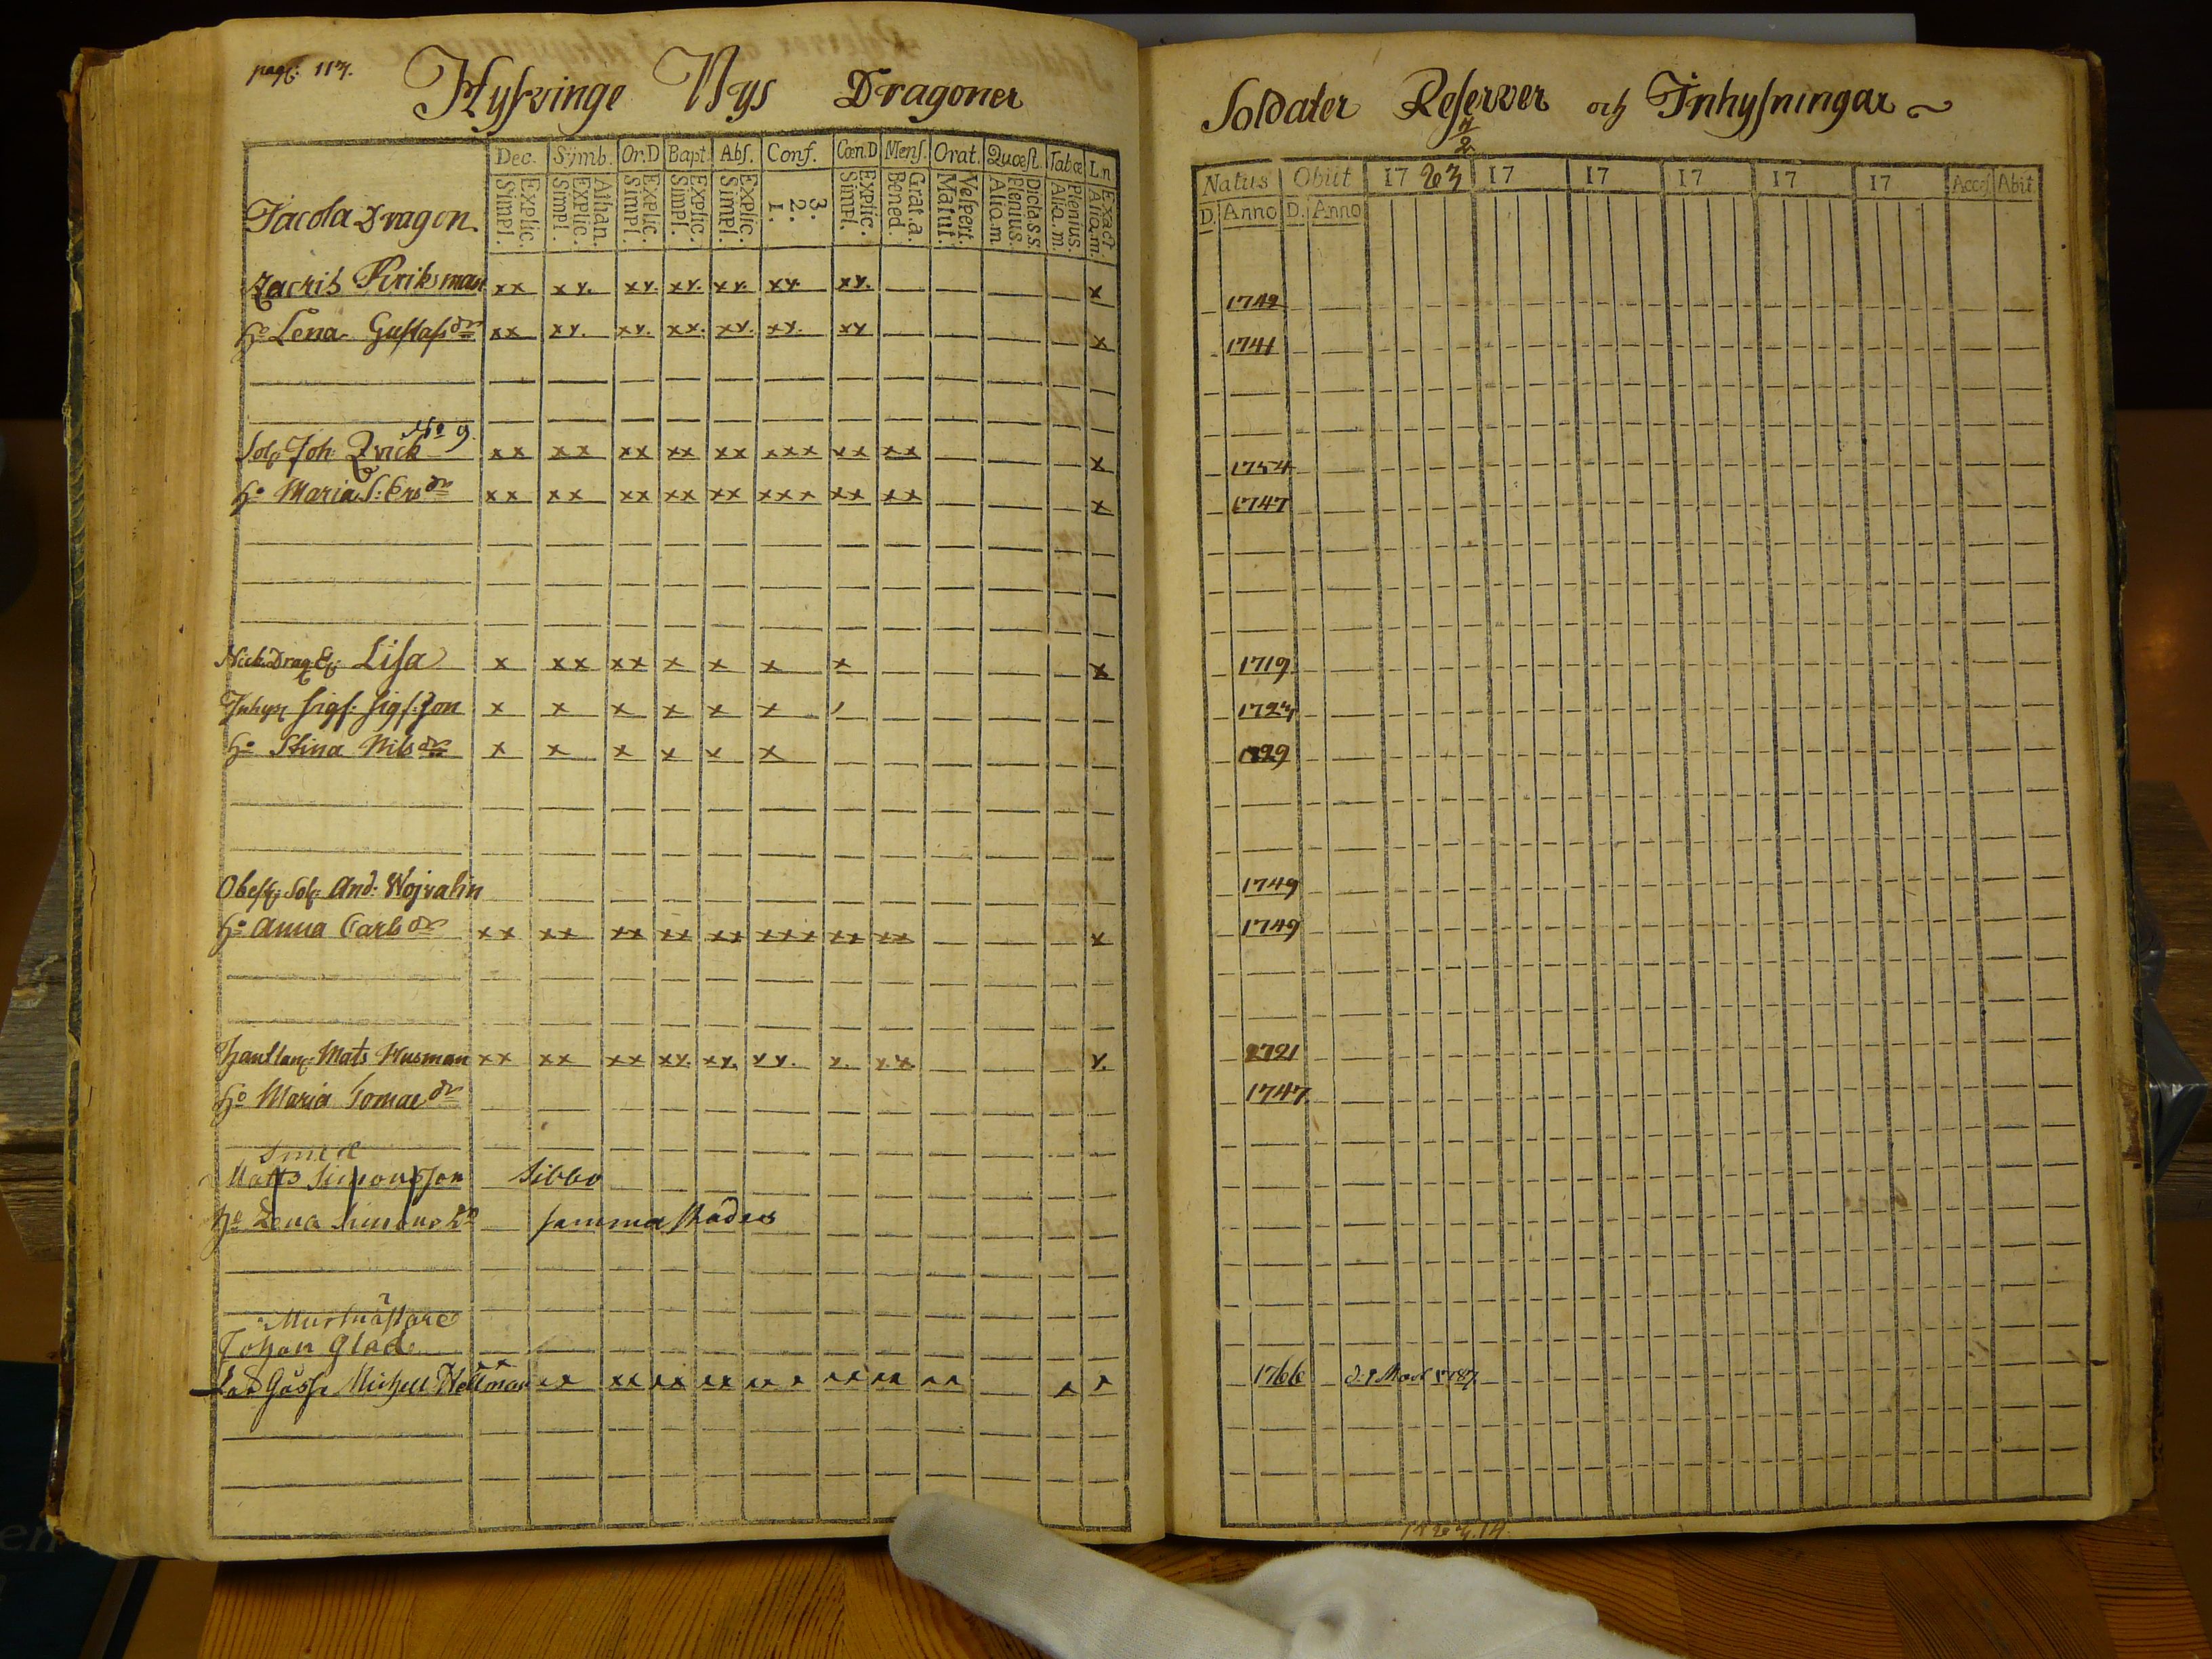 pag: 117.
Hyskvinge Nys Dragoner
Soldater Reserver och Inhysningar
Dec. Symb. Or.D Bapt. Abs. Conf. Cœn.D Mens. Orat. Quæst. Tabœ L.n
Jacola Dragon.
Explic. Simpl. Athan. Explic. Simpl. Explic. Simpl. Explic. Simpl. Explic. Simpl. 3. 2. 1. Explic. Simpl. Grat.a. Bened. Vespert. Matut. Dicta S.S. Plenius. Aliq.m. Plenius. Aliq.m. Exact Aliq.m.
Natus Obiit 17 83 17 17 17 17 17 Acces. Abit
D. Anno D. Anno
Zachris Kiriksman xx xx. xx. xx. xx. xx. xx. x 1742
h:o Lena Gustafsdr xx xx. xx. xx. xx. xx. xx x 1741
No 9.
Sol. Joh. Qvick xx xx xx xx xx xxx xx xx x 1754
h:o Maria S: Ersdr xx xx xx xx xx xxx xx xx x 1747
Nick Drag. E. Lisa x xx xx x x x x x 1719
Inhys Sigf: Sigf:Son x x x x x x 1727
h:o Stina Nilsdr x x x x x x 1729
Obest. Sol. And: Wojvalin 1749
h:o Anna Carlsdr xx xx xx xx xx xxx xx xx x 1749
Mats Husman xx xx xx xx. xx. xx. x. xx. x. 1721
h:o Maria Tomasdr 1747
Smed
Matts Simonsson Sibbo
h:o Lena Simonsdr samma städes
Murmästare
Johan Glad
Lad Gosse Michell Hellman xx xx xx xx xx xxx xx xx xx x x 1766